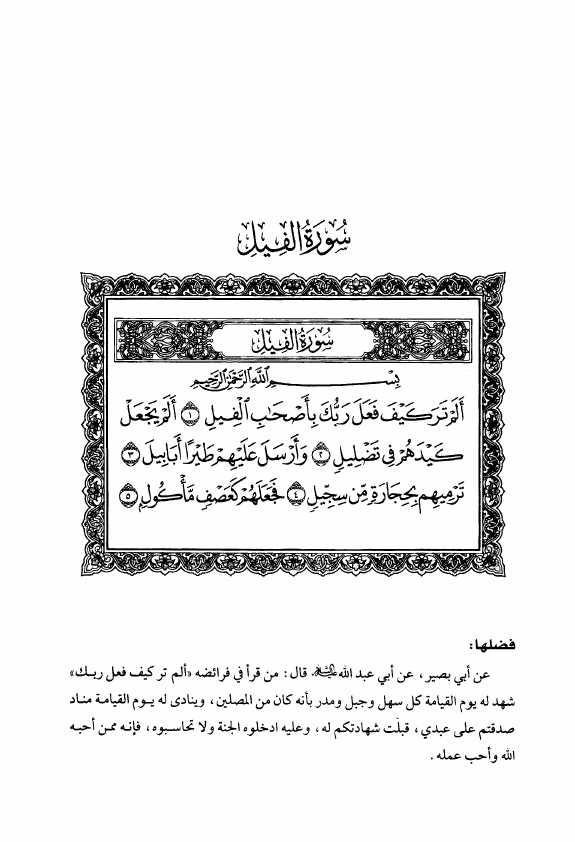 سُورَةُ الفِيلِ
سُورَةُ الفِيلِ
بِسْمِ اللَّهِ الرَّحْمَٰنِ الرَّحِيمِ
أَلَمْ تَرَ كَيْفَ فَعَلَ رَبُّكَ بِأَصْحَابِ الْفِيلِ ١ أَلَمْ يَجْعَلْ
كَيْدَهُمْ فِي تَضْلِيلٍ ٢ وَأَرْسَلَ عَلَيْهِمْ طَيْرًا أَبَابِيلَ ٣
تَرْمِيهِم بِحِجَارَةٍ مِّن سِجِّيلٍ ٤ فَجَعَلَهُمْ كَعَصْفٍ مَّأْكُولٍ ٥
فضلها:
عن أبي بصير، عن أبي عبد الله قال: من قرأ في فرائضه «ألم تر كيف فعل ربك»
شهد له يوم القيامة كل سهل وجبل ومدر بأنه كان من المصلين، وينادى له يوم القيامة مناد
صدقتم على عبدي، قبلت شهادتكم له، وعليه ادخلوه الجنة ولا تحاسبوه، فإنه ممن أحبه
الله وأحب عمله.